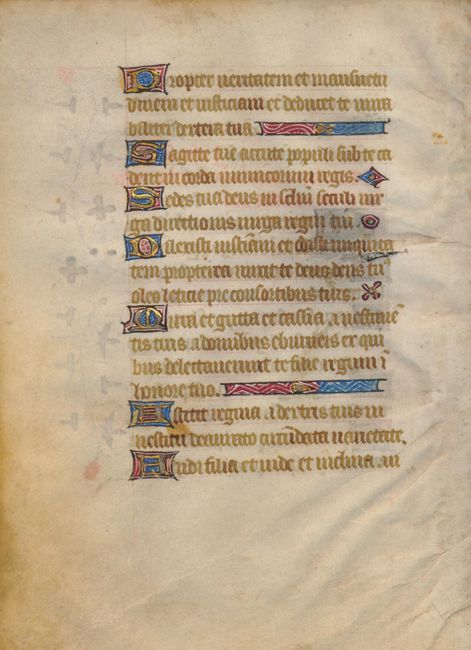 Propter ueritatem et mansuetu
dinem et iusticiam et deducet te mira
biliter dextera tua.
Sagitte tue accute populi sub te ca
dent in corda inimicorum regis.
Sedes tua deus in sclm scli uir
ga directionis uirga regni tui.
Dilexisti iusticiam et odisti iniquita
tem propterea unxit te deus deus tu'
oleo leticie pre consortibus tuis.
Mirra et gutta et cassia a uestimē
tis tuis a domibus eburneis ex qui
bus delectauerunt te filie regum ī
honore tuo.
Astitit regina a dextris tuis in
uestitu deaurato circūdata uarietate.
Audi filia et uide et inclina au